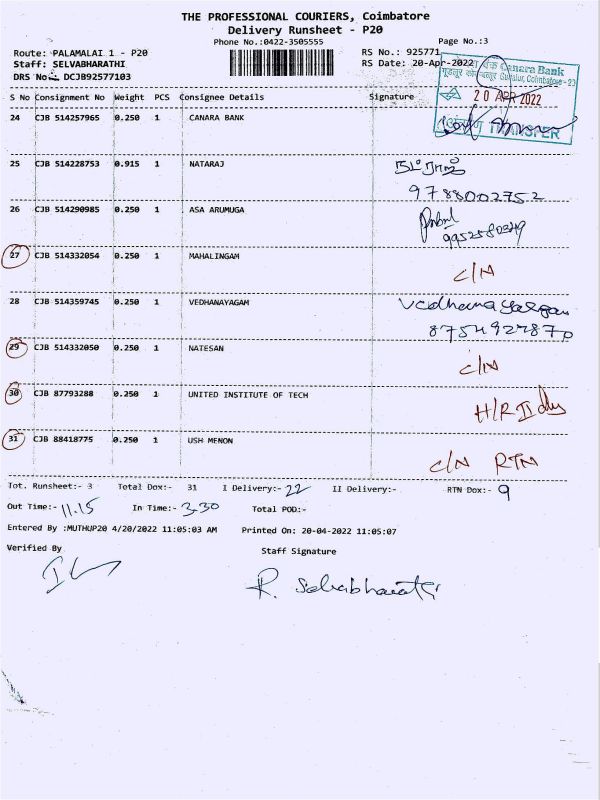 THE PROFESSIONAL COURIERS, Coimbatore
Delivery Runsheet - P20
Phone No.:0422-3505555 Page No.:3
Route: PALAMALAI 1 - P20 RS No.: 925771
Staff: SELVABHARATHI RS Date: 20-Apr-2022
DRS No.: DCJB925577103
Canara Bank
Gudalur, Coimbatore - 23
20 APR 2022
TRANSFER
S No Consignment No Weight PCS Consignee Details Signature
24 CJB 514257965 0.250 1 CANARA BANK
25 CJB 514228753 0.915 1 NATARAJ நடராஜ்
9788002752
26 CJB 514290985 0.250 1 ASA ARUMUGA
27 CJB 514332054 0.250 1 MAHALINGAM C/N
28 CJB 514359745 0.250 1 VEDHANAYAGAM
29 CJB 514332050 0.250 1 NATESAN C/N
30 CJB 87793288 0.250 1 UNITED INSTITUTE OF TECH H/R II dly
31 CJB 88418775 0.250 1 USH MENON C/N RTN
Tot. Runsheet:- 3 Total Dox:- 31 I Delivery:- 22 II Delivery:- RTN Dox:- 9
Out Time:- 11.15 In Time:- 3.30 Total POD:-
Entered By :MUTHUP20 4/20/2022 11:05:03 AM Printed On: 20-04-2022 11:05:07
Verified By Staff Signature
R. Selvabharathi